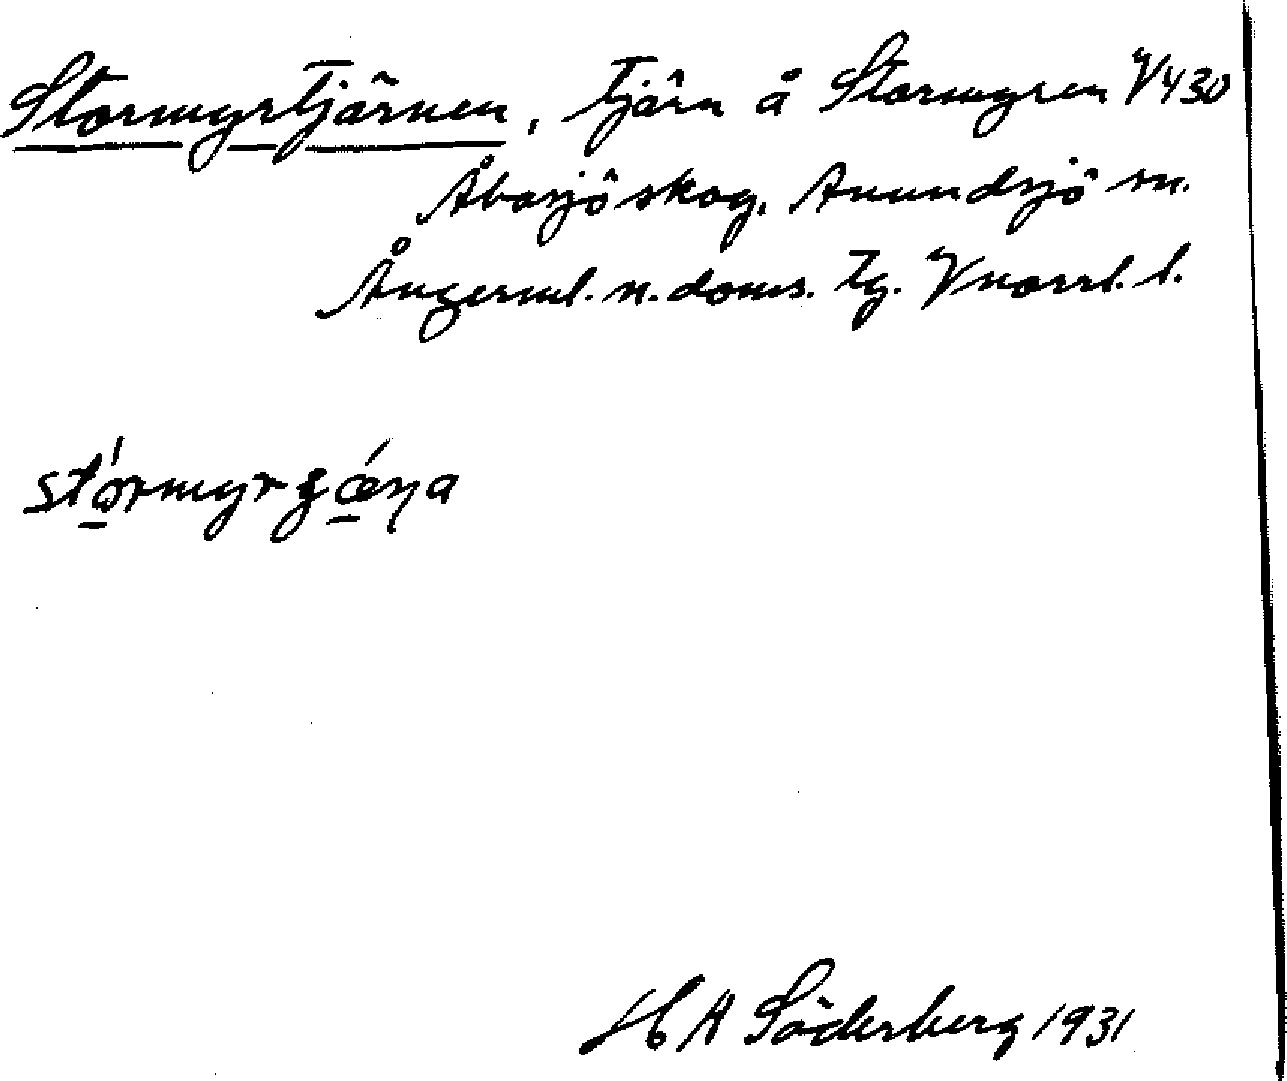 Stormyrtjärnen, tjärn å Stormyren V430
Åbosjö skog, Anundsjö sn.
Ångerml. n. doms. tg. Vnorrl. l.
H A Söderberg 1931